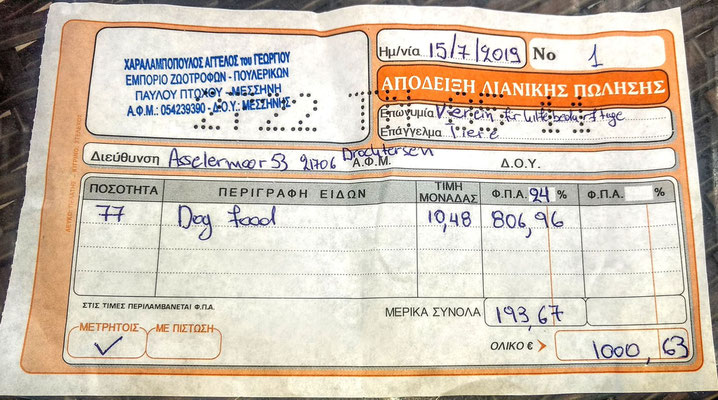 ΧΑΡΑΛΑΜΠΟΠΟΥΛΟΣ ΑΓΓΕΛΟΣ του ΓΕΩΡΓΙΟΥ
ΕΜΠΟΡΙΟ ΖΩΟΤΡΟΦΩΝ - ΠΟΥΛΕΡΙΚΩΝ
ΠΑΥΛΟΥ ΠΤΩΧΟΥ - ΜΕΣΣΗΝΗ
Α.Φ.Μ.: 054239390 - Δ.Ο.Υ.: ΜΕΣΣΗΝΗΣ
Ημ/νία 15/7/2019 No 1
ΑΠΟΔΕΙΞΗ ΛΙΑΝΙΚΗΣ ΠΩΛΗΣΗΣ
Επωνυμία Verein für
Επάγγελμα Tiere
Διεύθυνση Asselermoor 53 21706 Drochtersen Α.Φ.Μ. Δ.Ο.Υ.
ΠΟΣΟΤΗΤΑ ΠΕΡΙΓΡΑΦΗ ΕΙΔΩΝ ΤΙΜΗ ΜΟΝΑΔΑΣ Φ.Π.Α. 24 % Φ.Π.Α. %
77 Dog food 10,48 806,96
ΣΤΙΣ ΤΙΜΕΣ ΠΕΡΙΛΑΜΒΑΝΕΤΑΙ Φ.Π.Α.
ΜΕΡΙΚΑ ΣΥΝΟΛΑ 193,67
ΜΕΤΡΗΤΟΙΣ ΜΕ ΠΙΣΤΩΣΗ
ΟΛΙΚΟ € 1000,63